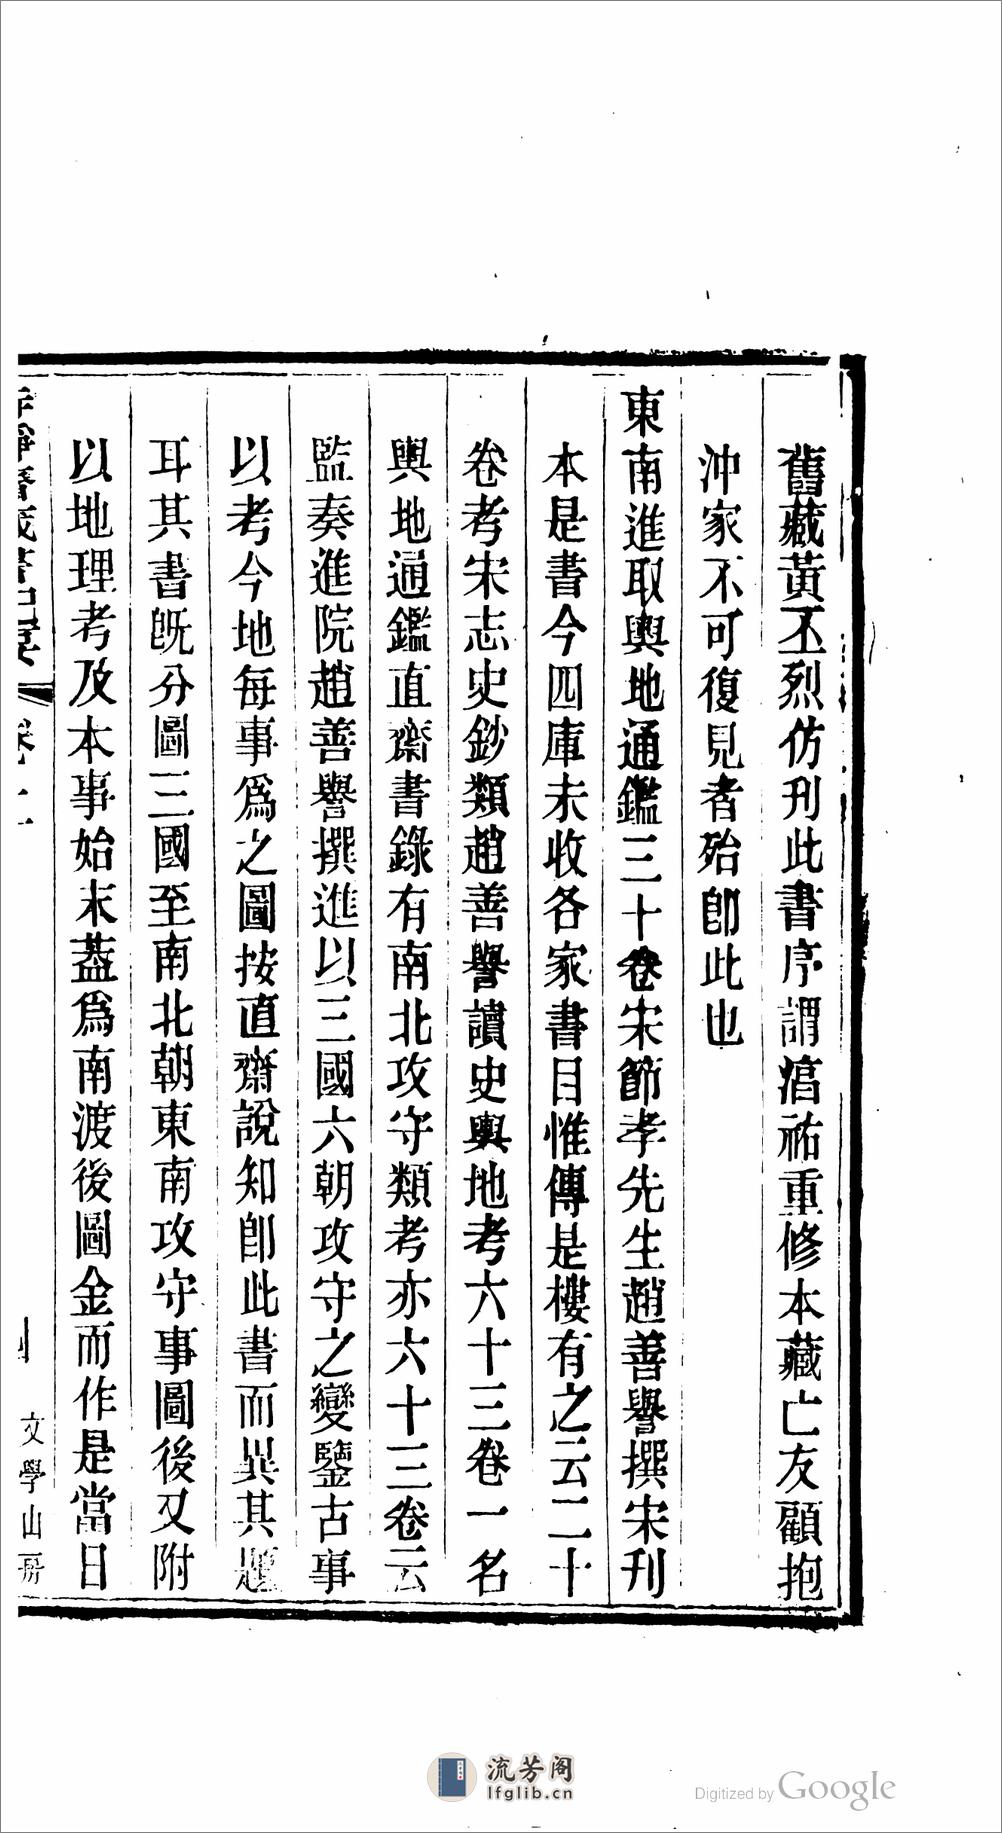 舊藏黃丕烈仿刊此書序謂湻祐重修本藏亡友顧抱
沖家不可復見者殆卽此也
東南進取輿地通鑑三十卷宋節孝先生趙善譽撰宋刊
本是書今四庫未收各家書目惟傳是樓有之云二十
卷考宋志史鈔類趙善譽讀史輿地考六十三卷一名
輿地通鑑直齋書錄有南北攻守類考亦六十三卷云
監奏進院趙善譽撰進以三國六朝攻守之變鑒古事
以考今地每事爲之圖按直齋說知卽此書而異其題
耳其書旣分圖三國至南北朝東南攻守事圖後又附
以地理考及本事始末蓋爲南渡後圖金而作是當日
持靜齋藏書記要 卷上
文學山房
流芳阁
lfglib.cn
Digitized by Google